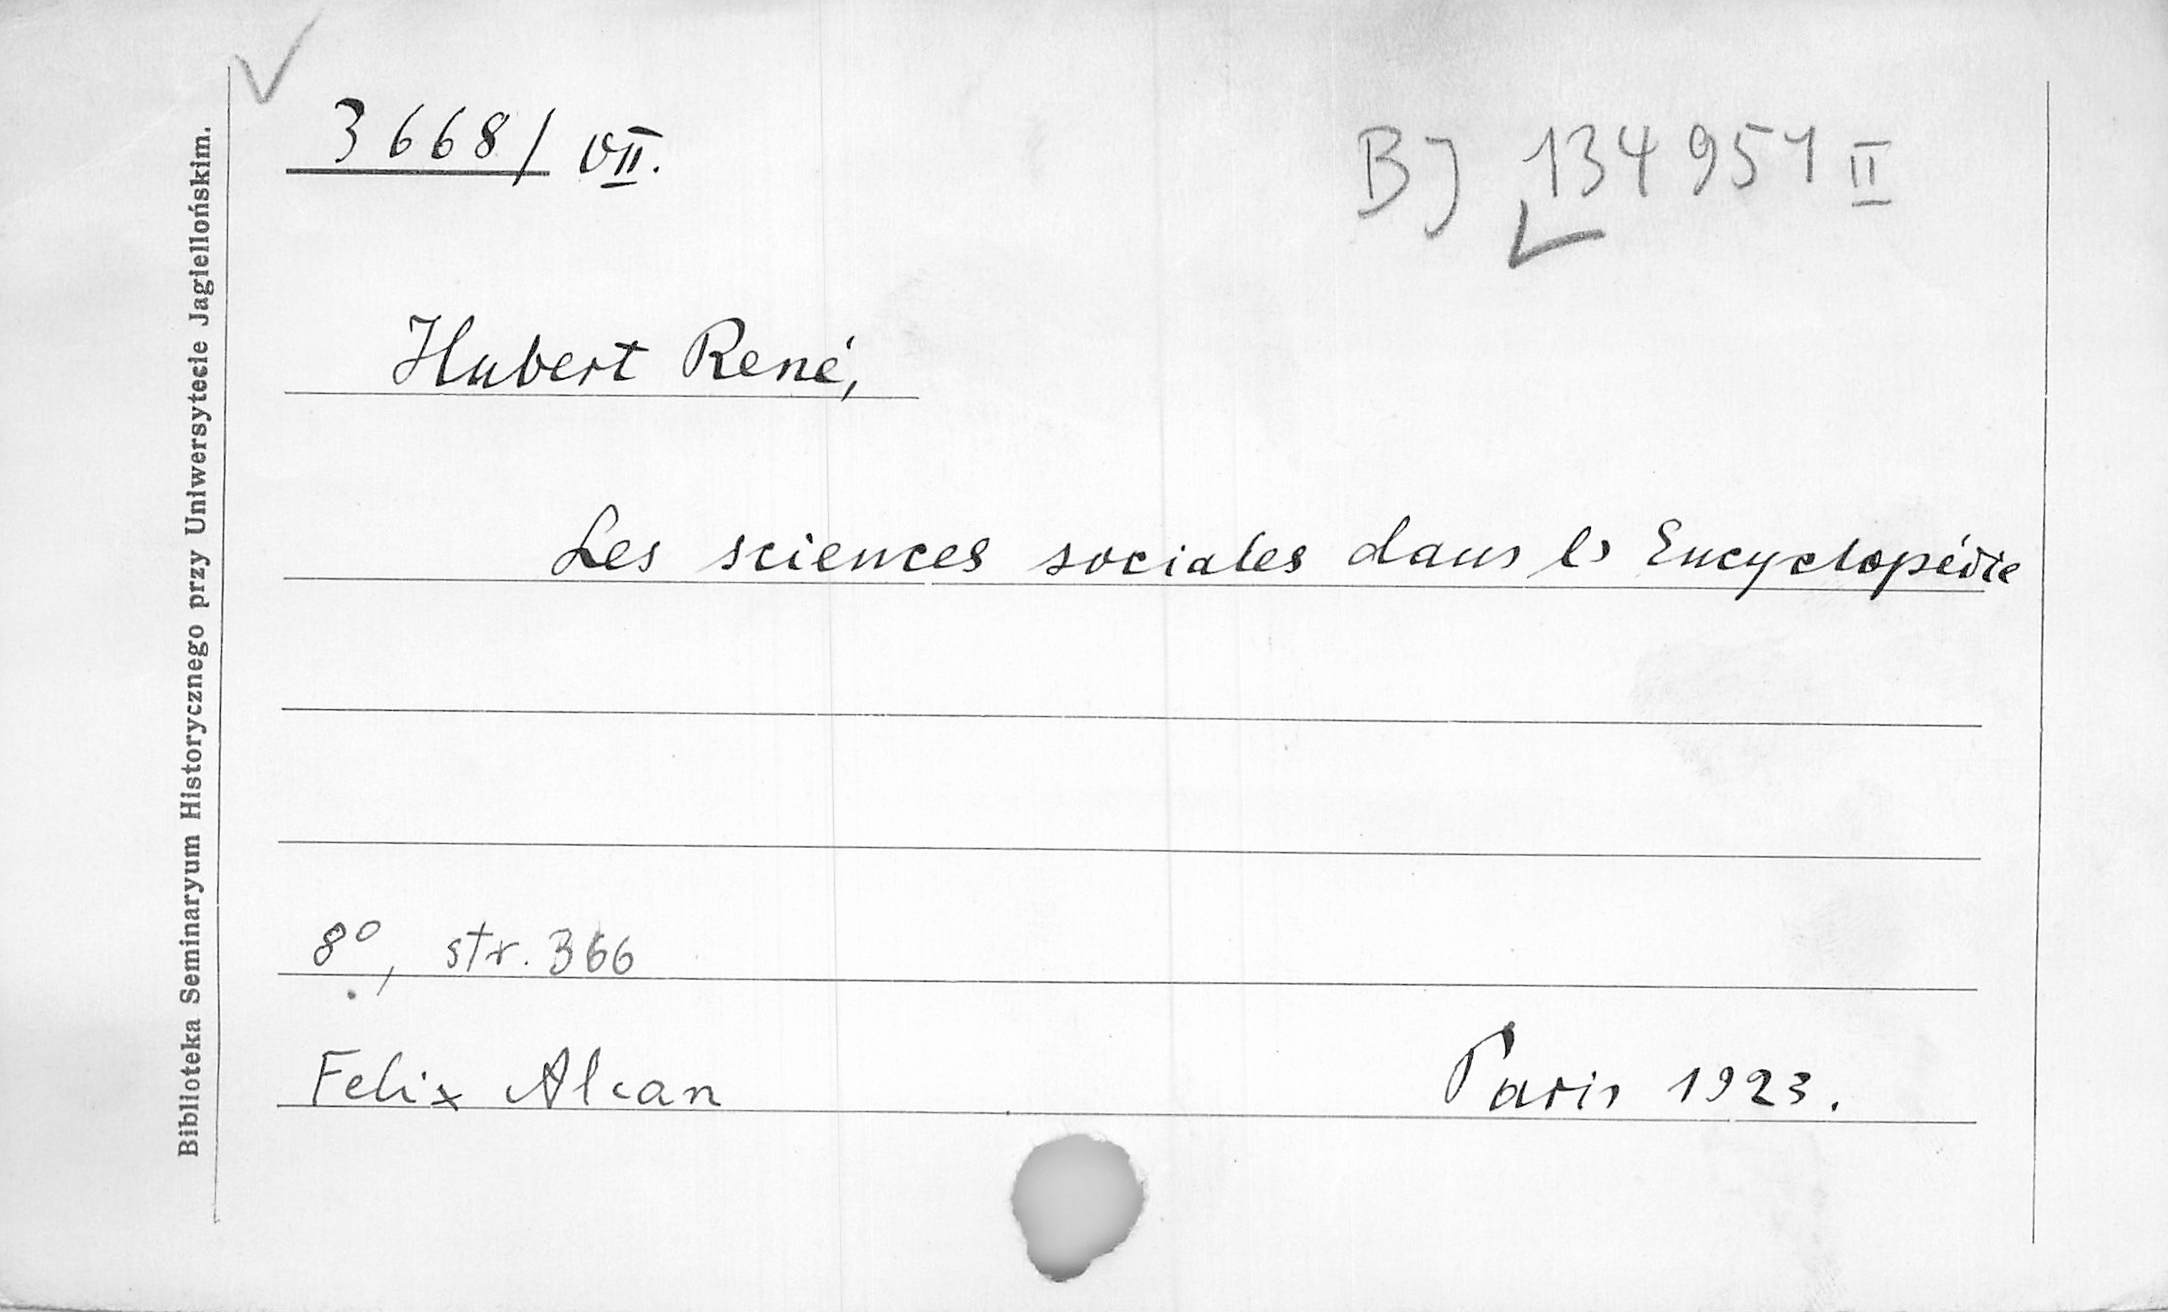 3668/ VII.
BJ 134951 II
Hubert René,
Les sciences sociales dans l' Encyclopédie
8º, str. 366
Felix Alcan
Paris 1923.
Biblioteka Seminaryum Historycznego przy Uniwersytecie Jagiellońskim.